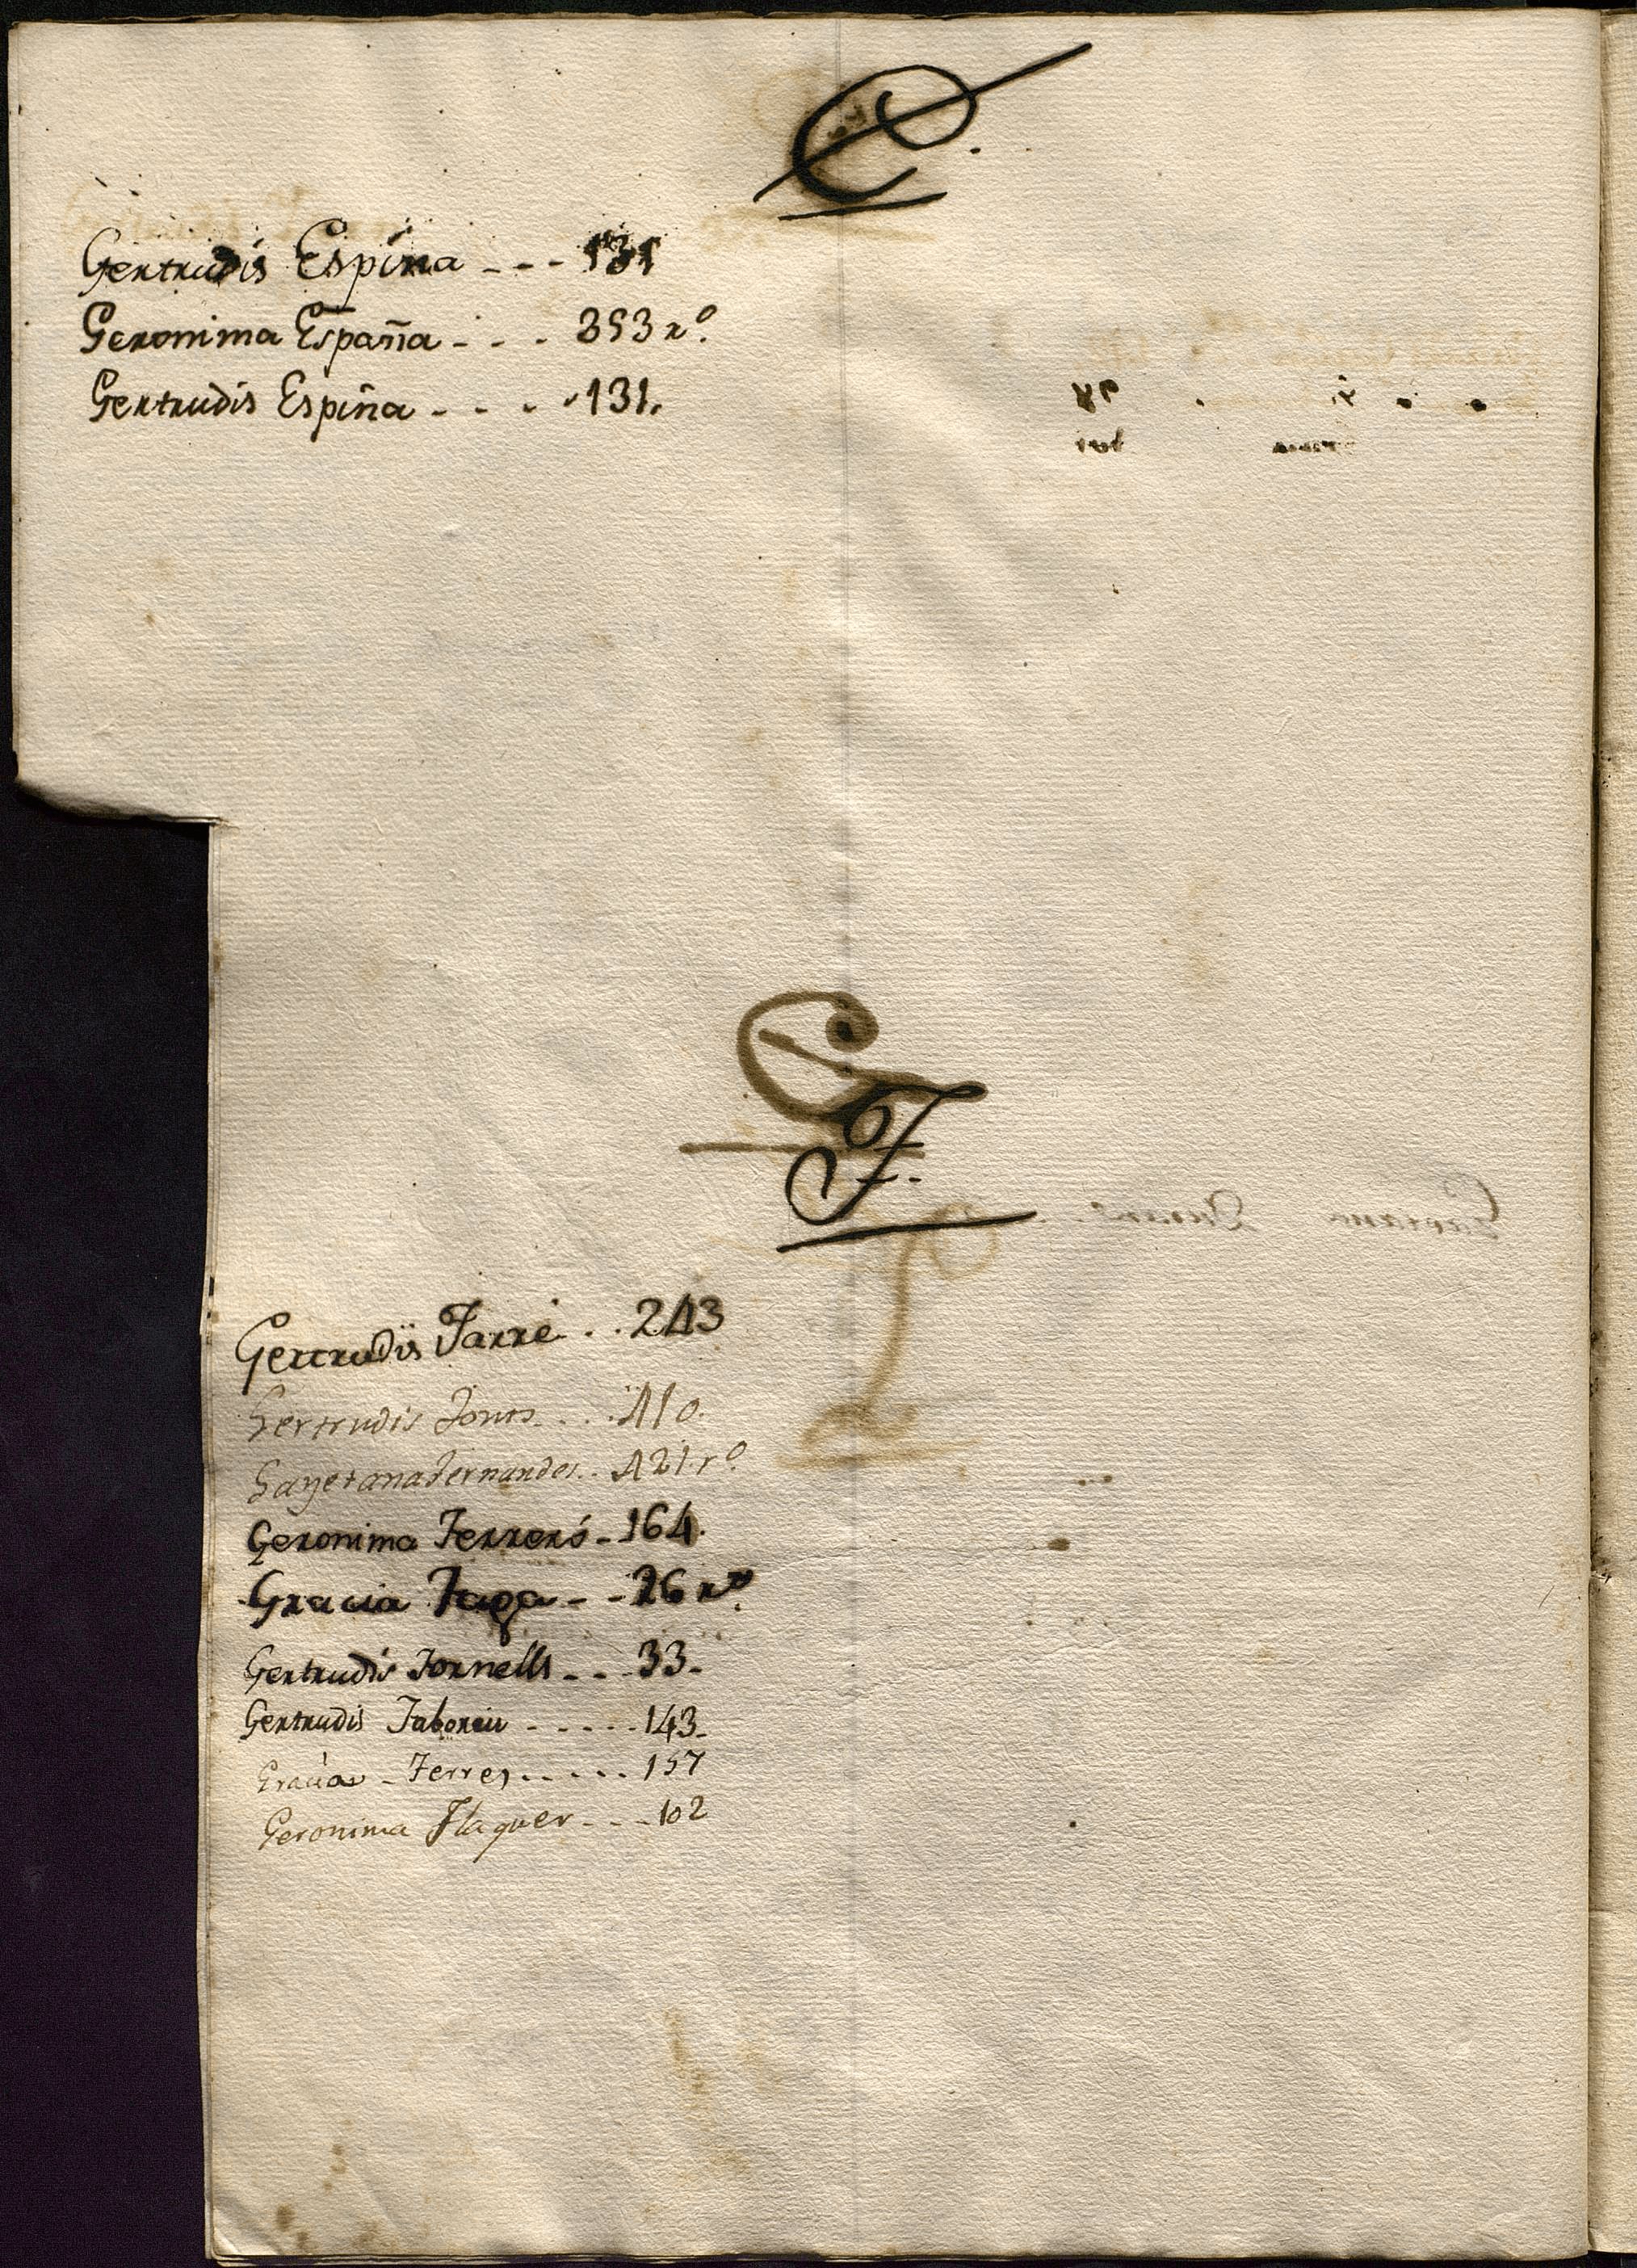 E.
Gertrudis Espina - - - 131
Geronima España - - - 353 rº.
Gertrudis Espina - - - - 131.
G
F.
Gertrudis Farré . . 243
Gertrudis Fonts . . . 410.
Gayetana Fernandes . . 421. rº.
Geronima Ferreró - 164.
Gracia - - 26 rº.
Gertrudis Fornells - - - 33.
Gertrudis Faboreu - - - - - 143.
Gracia - Ferrer . . - . . 157
Geronima Flaquer - - - 102